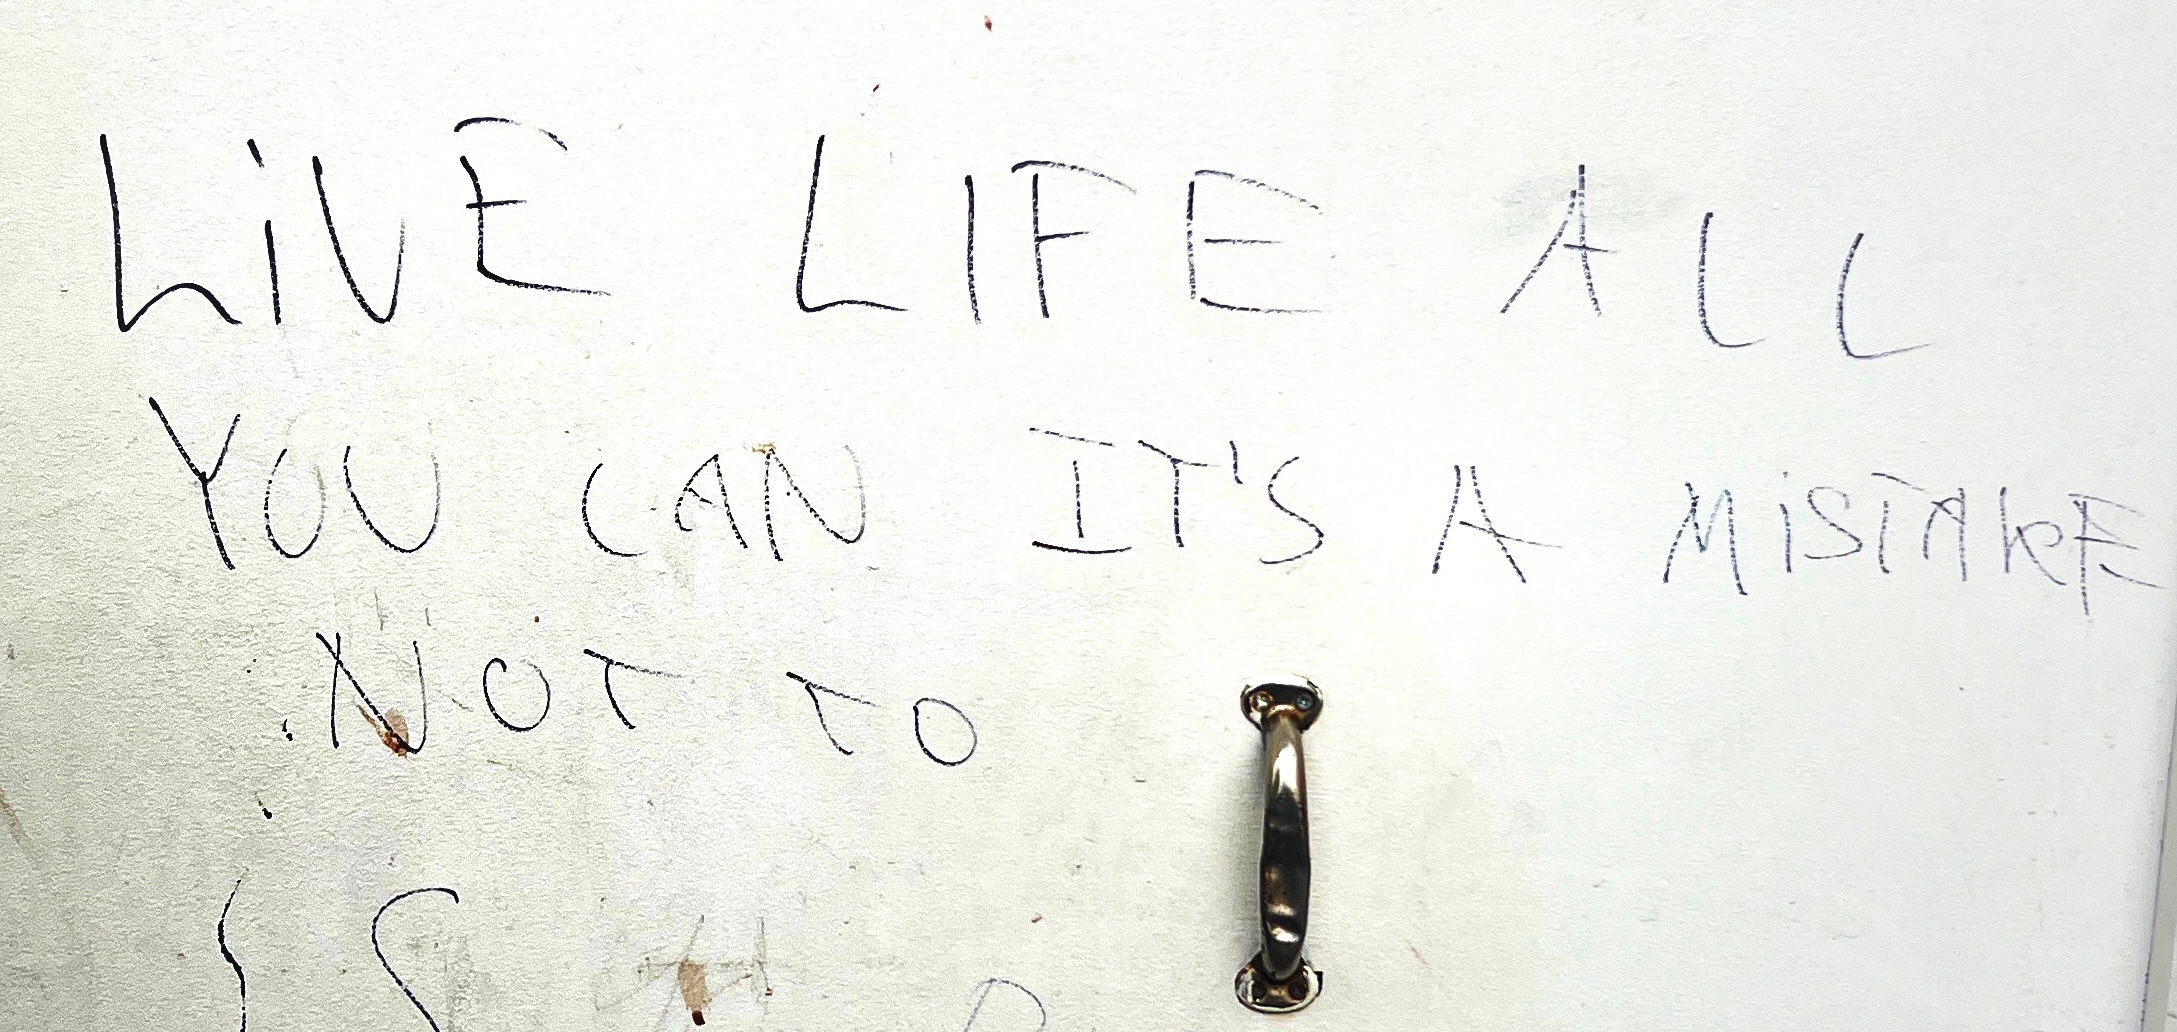 LiVE LIFE ALL
YOU CAN IT'S A MiSTAKE
NOT TO